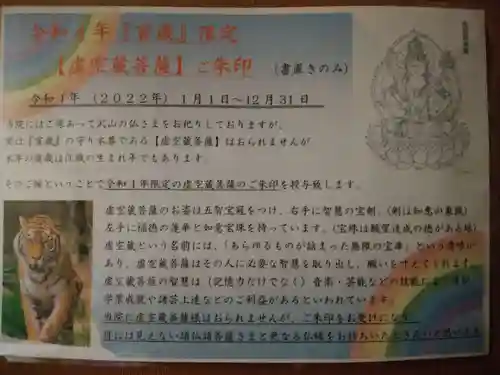 令和4年『寅歳』限定
【虚空蔵菩薩】ご朱印 （書置きのみ）
令和4年 （2022年） 1月1日～12月31日
当院にはご縁あって沢山の仏さまをお祀りしておりますが、
『寅歳』の守り本尊である【虚空蔵菩薩】はおられませんが
本年の寅歳は 生まれ年でもあります
そのご縁ということで令和4年限定の虚空蔵菩薩のご朱印を授与致します。
虚空蔵菩薩のお姿は五智宝冠をつけ、右手に智慧の宝剣、（剣は知恵の象徴）
左手に福徳の蓮華と如意宝珠を持っています。（宝珠は願望達成の徳がある珠）
虚空蔵という名前には、「あらゆるものが詰まった無限の宝庫」という意味が
あり、虚空蔵菩薩はその人に必要な智慧を取り出し、願いを叶えてくれます。
虚空蔵菩薩の智慧は（記憶力だけでなく）音楽・芸能などの技能に
学業成就や諸芸上達などのご利益があるといわれています。
当院に虚空蔵菩薩様はおられませんが、ご朱印をお受けになり
目には見えない諸仏諸菩薩さまと更なる仏縁をお持ちいただきたいと思います